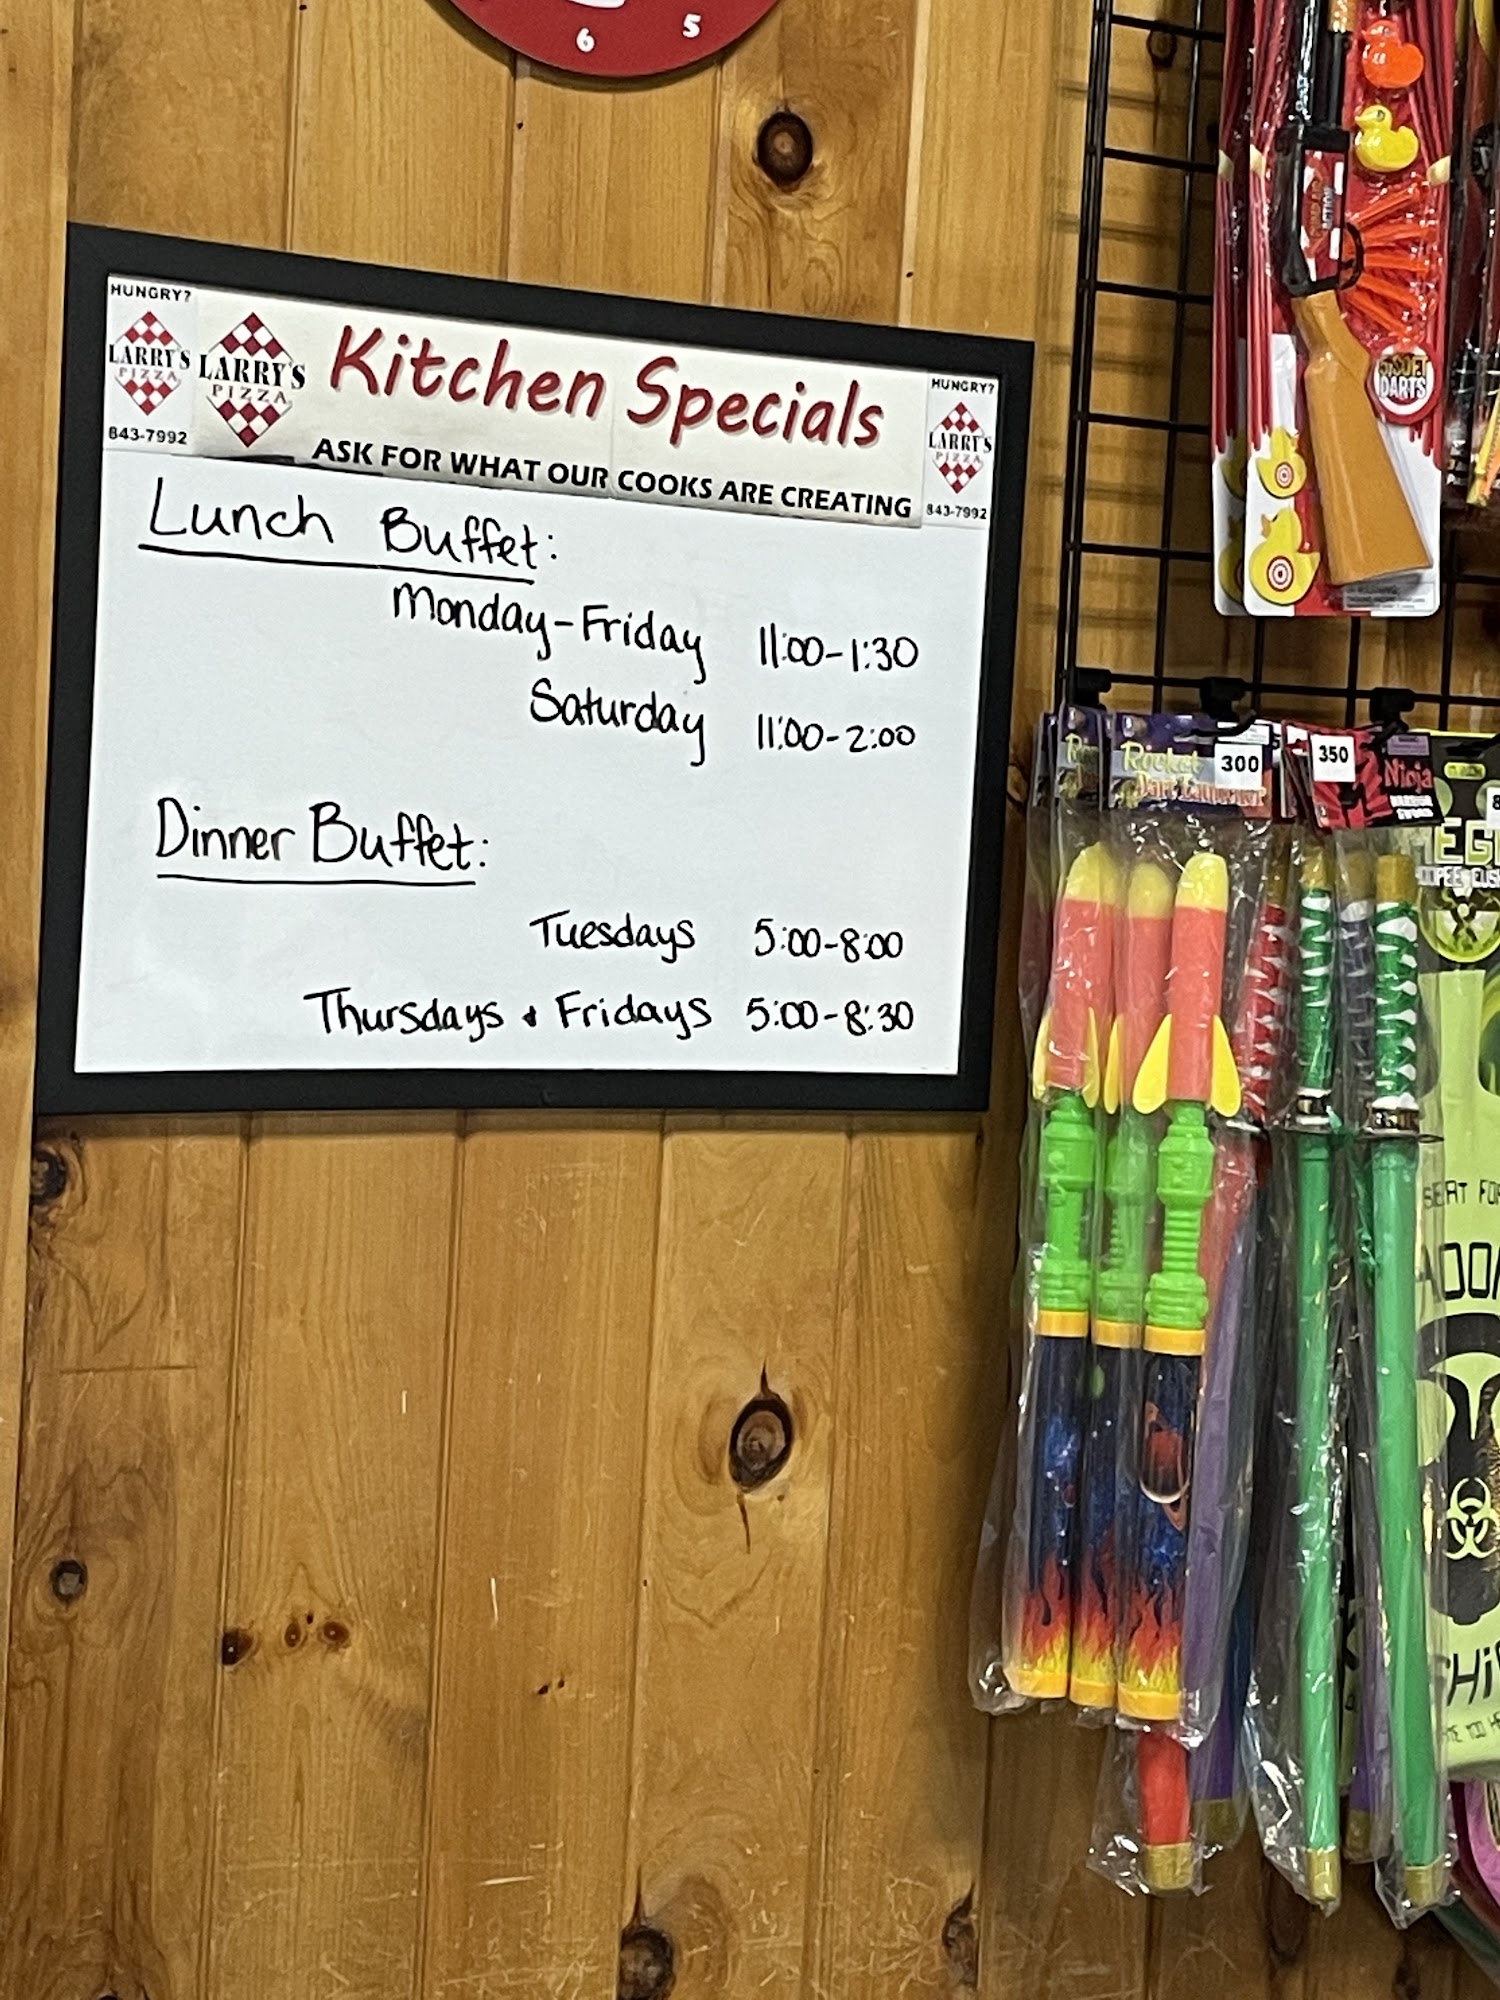 6 5
HUNGRY?
LARRY'S
PIZZA
843-7992
LARRY'S
PIZZA
Kitchen Specials
ASK FOR WHAT OUR COOKS ARE CREATING
HUNGRY?
LARRY'S
PIZZA
843-7992
Lunch Buffet:
Monday-Friday 11:00-1:30
Saturday 11:00-2:00
Dinner Buffet:
Tuesdays 5:00-8:00
Thursdays & Fridays 5:00-8:30
ACTION
DARTS
Rocket
Dart Launcher
300
350
Ninja